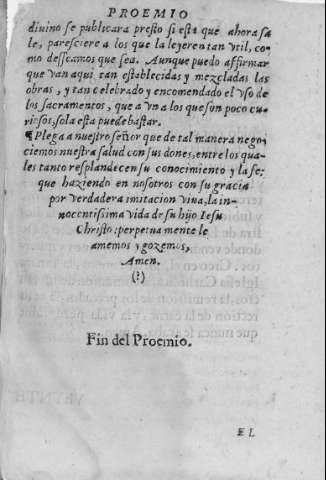 PROEMIO
diuino se publicara presto si esta que ahora sa
le, paresciere a los que la leyeren tan vtil, co-
mo desseamos que sea. Aunque puedo affirmar
que van aqui tan establecidas y mezcladas las
obras, y tan celebrado y encomendado el vso de
los sacramentos, que a vn a los que son poco cu-
riosos, sola esta puede bastar.
¶ Plega a nuestro señor que de tal manera nego
ciemos nuestra salud con sus dones, entre los qua-
les tanto resplandecen su conocimiento y la fe;
que haziendo en nosotros con su gracia
por verdadera imitacion viua, la in-
nocentissima vida de su hijo Iesu
Christo: perpetuamente le
amemos y gozemos,
Amen.
(?)
Fin del Proemio.
EL